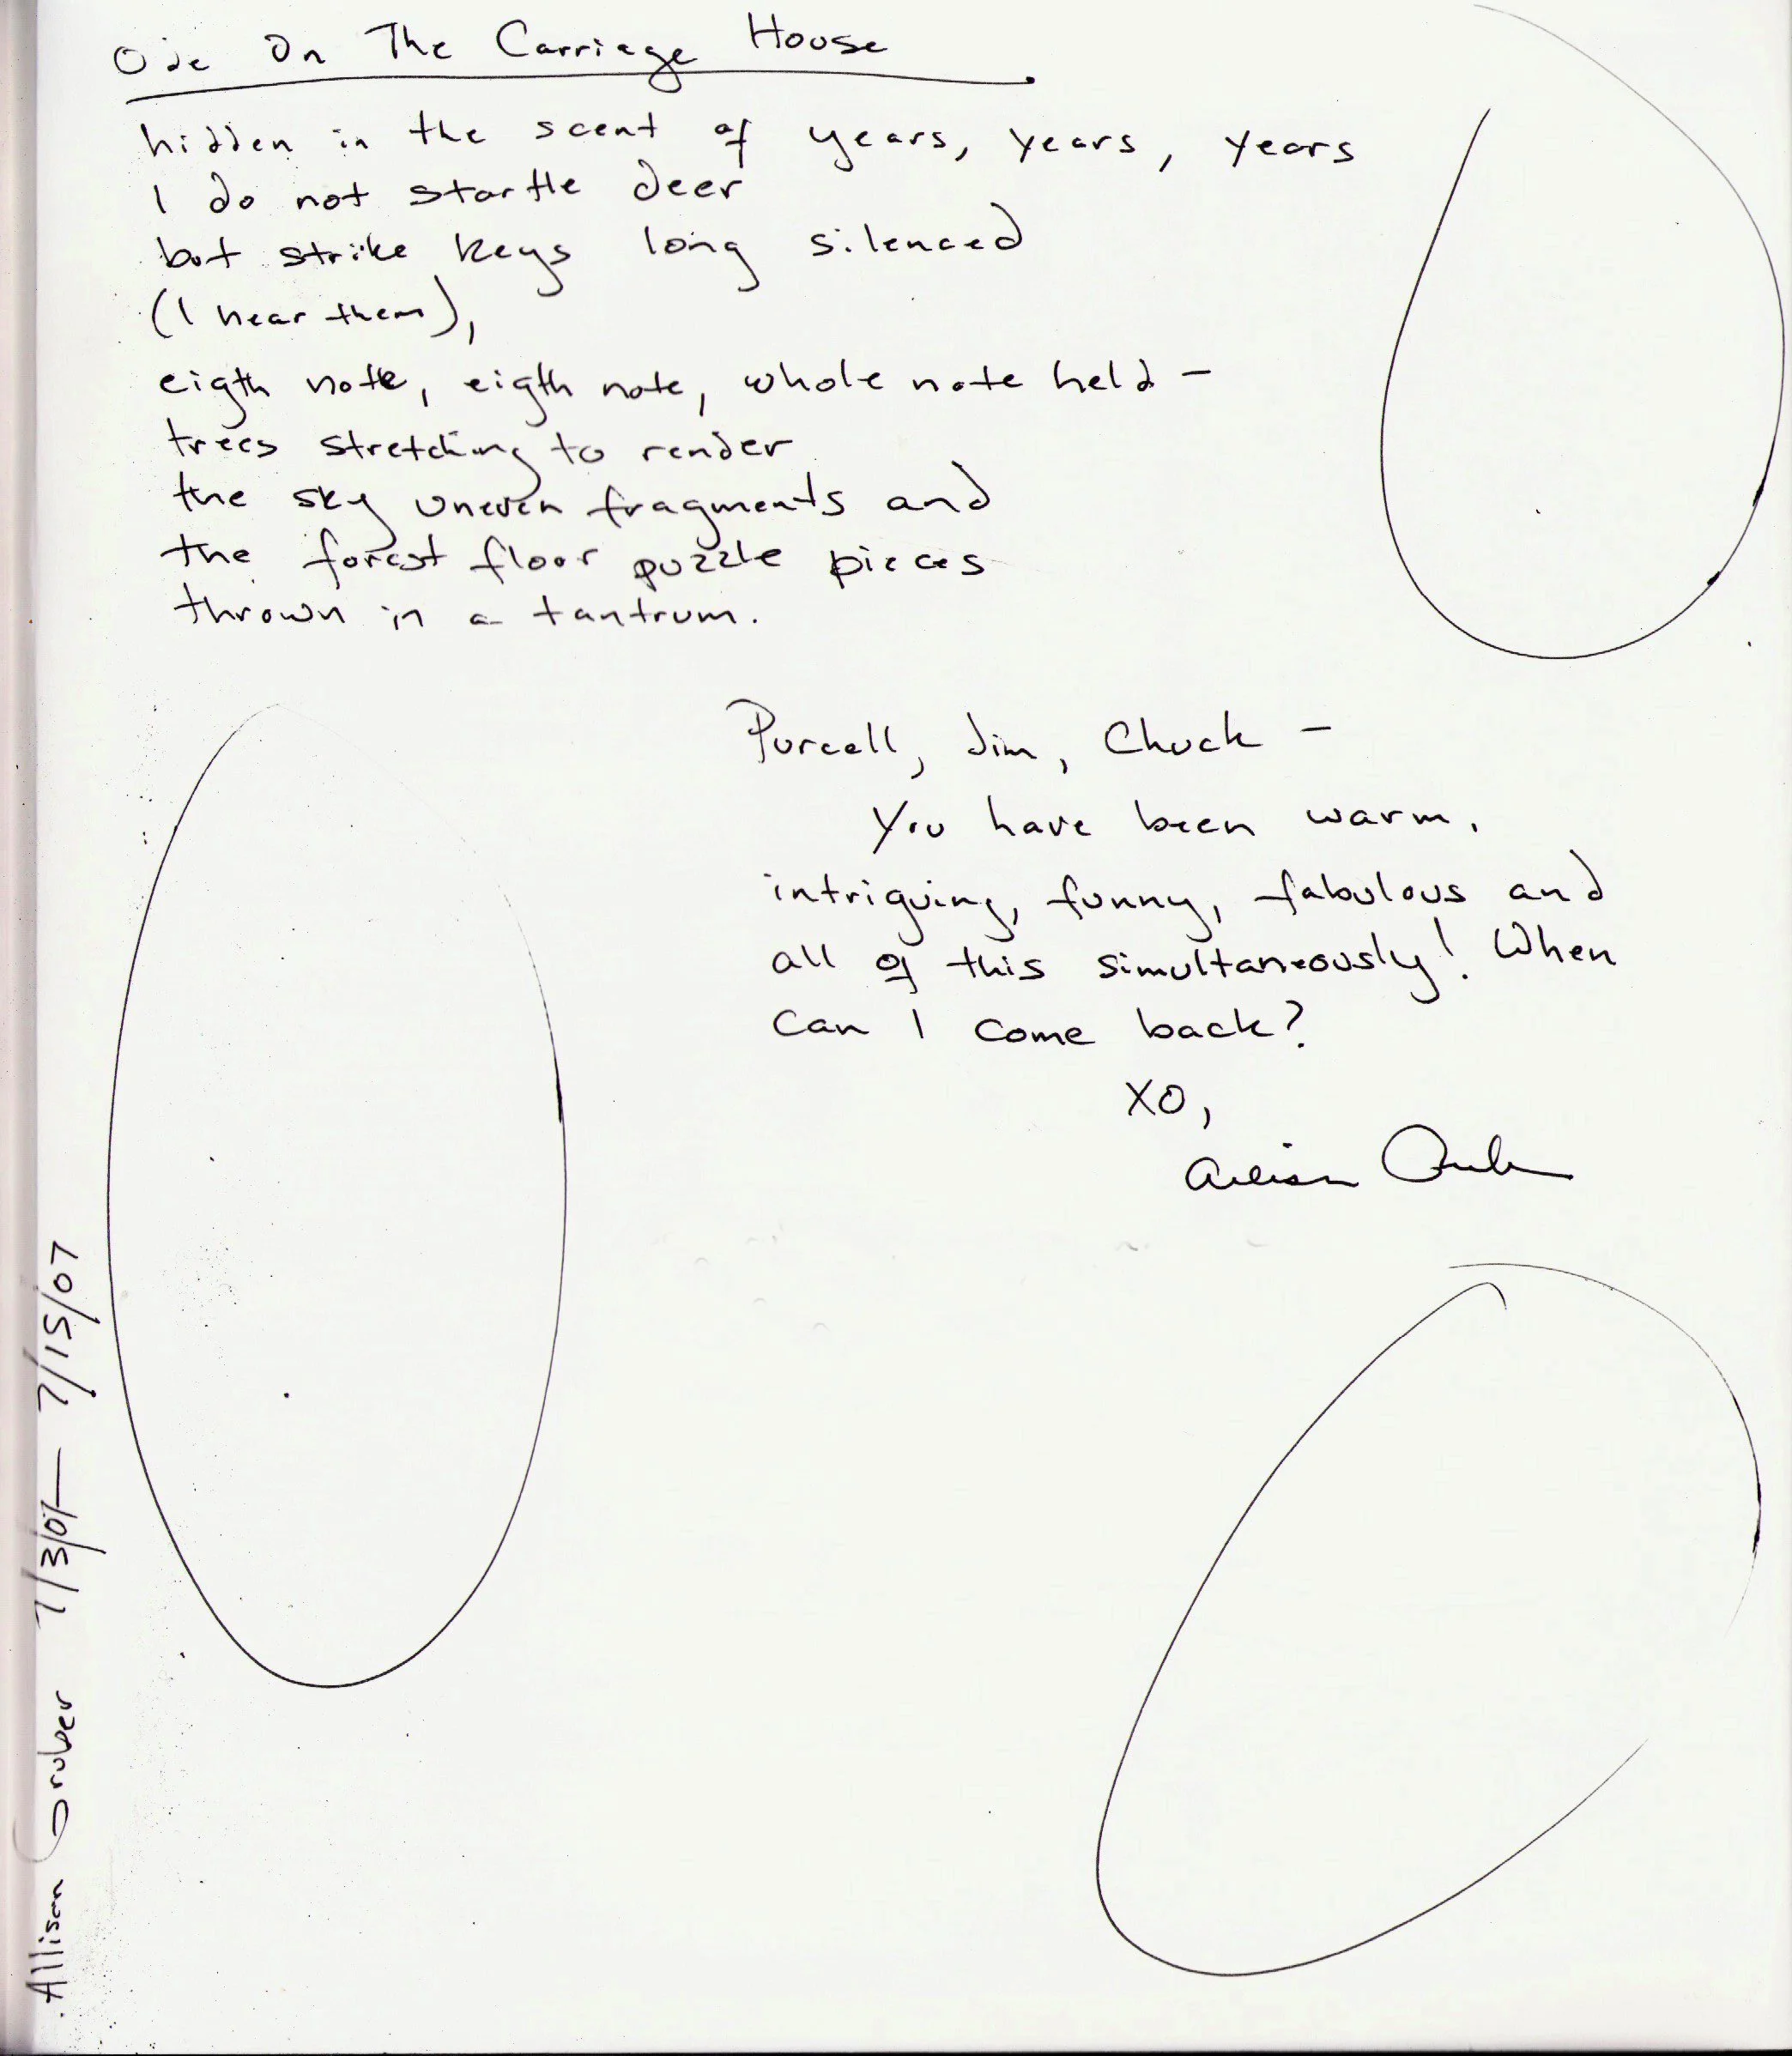 Ode On The Carriage House
hidden in the scent of years, years, years
I do not startle deer
but strike keys long silenced
(I hear them),
eigth note, eigth note, whole note held –
trees stretching to render
the sky uneven fragments and
the forest floor puzzle pieces
thrown in a tantrum.
Purcell, Jim, Chuck –
You have been warm,
intriguing, funny, fabulous and
all of this simultaneously! When
can I come back?
XO,
Allison Gruber
Allison Gruber 7/3/07 – 7/15/07